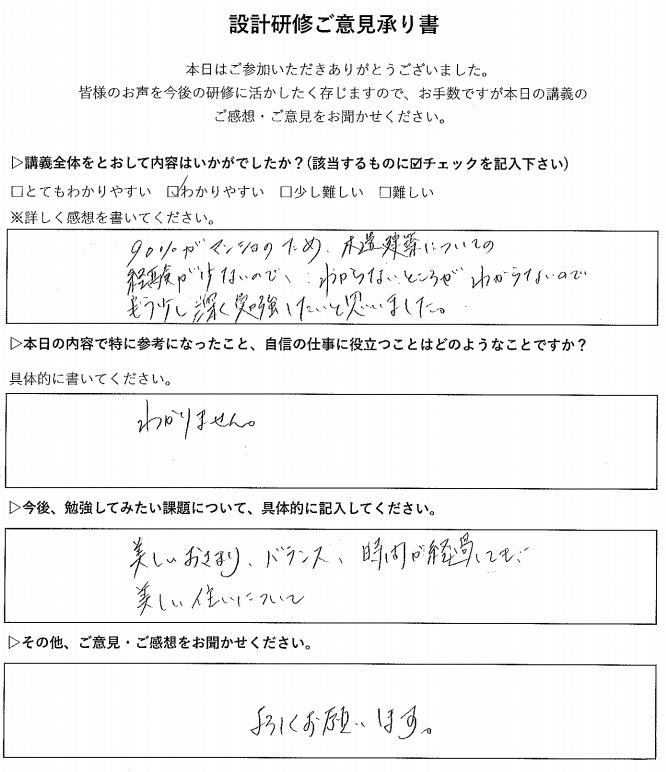 設計研修ご意見承り書
本日はご参加いただきありがとうございました。
皆様のお声を今後の研修に活かしたく存じますので、お手数ですが本日の講義の
ご感想・ご意見をお聞かせください。
▷講義全体をとおして内容はいかがでしたか？(該当するものに☑チェックを記入下さい)
□とてもわかりやすい ☑わかりやすい □少し難しい □難しい
※詳しく感想を書いてください。
90%がマンションのため、木造建築についての
経験が少ないので、わからないところがわからないので
もう少し深く勉強したいと思いました。
▷本日の内容で特に参考になったこと、自信の仕事に役立つことはどのようなことですか？
具体的に書いてください。
わかりません。
▷今後、勉強してみたい課題について、具体的に記入してください。
美しいおさまり、バランス、時間が経過しても
美しい住いについて
▷その他、ご意見・ご感想をお聞かせください。
よろしくお願いします。